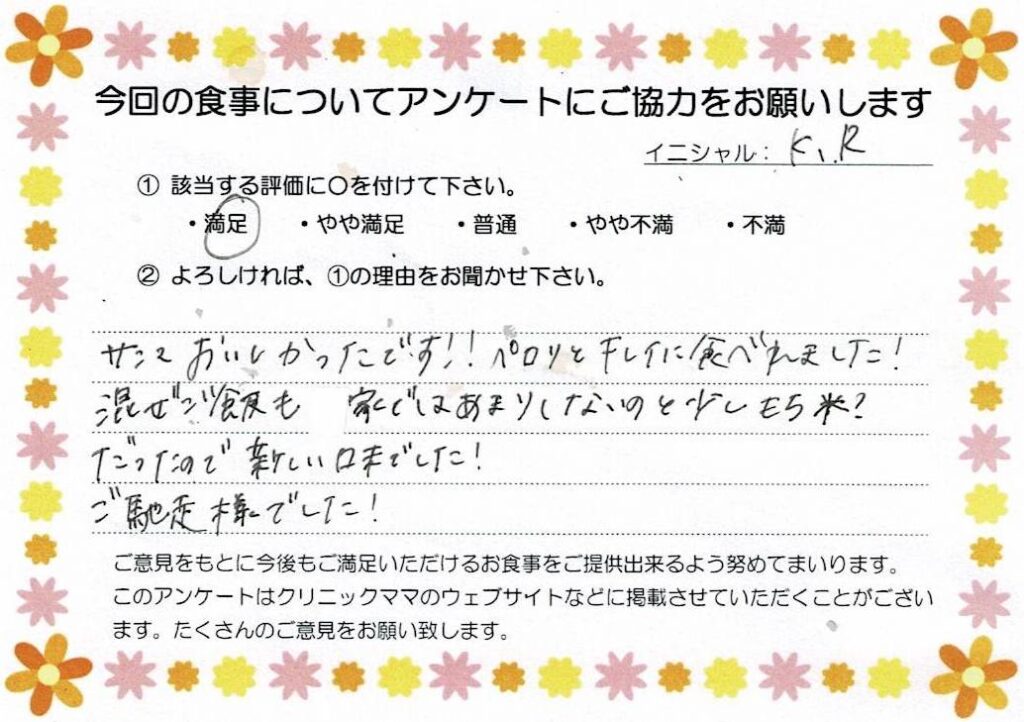 今回の食事についてアンケートにご協力をお願いします
イニシャル: K、R
① 該当する評価に〇を付けて下さい。
・満足 ・やや満足 ・普通 ・やや不満 ・不満
② よろしければ、①の理由をお聞かせ下さい。
サンマ おいしかったです!! ペロリとキレイに食べれました!
混ぜご飯も 家ではあまりしないのと少しもち米?
だったので 新しい口までした!
ご馳走様でした!
ご意見をもとに今後もご満足いただけるお食事をご提供出来るよう努めてまいります。
このアンケートはクリニックママのウェブサイトなどに掲載させていただくことがござい
ます。たくさんのご意見をお願い致します。